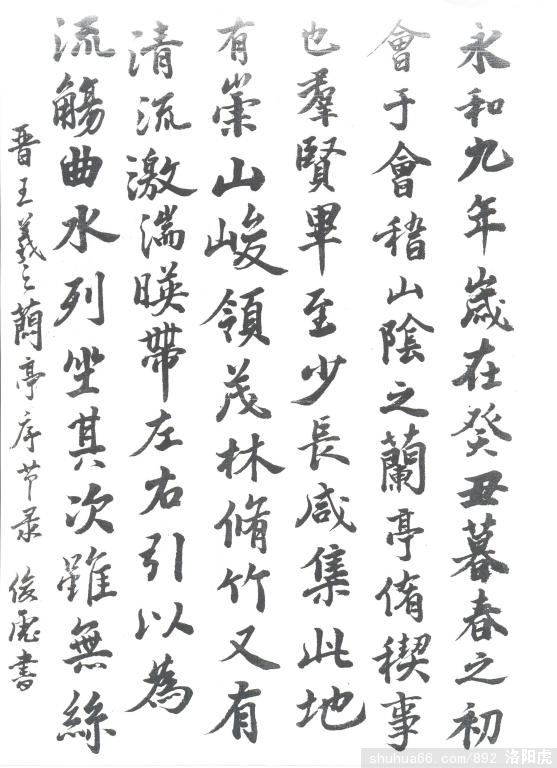 永和九年歲在癸丑暮春之初
會于會稽山陰之蘭亭脩稧事
也羣賢畢至少長咸集此地
有崇山峻領茂林脩竹又有
清流激湍暎帶左右引以為
流觴曲水列坐其次雖無絲
晋王羲之蘭亭序节录 俊虎書
shuhua66.com/892 洛阳虎